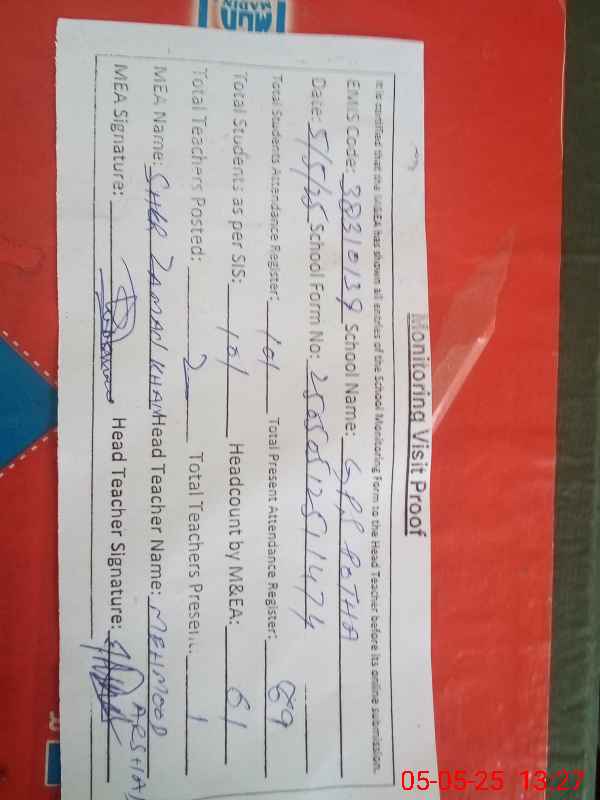 Monitoring Visit Proof
It is certified that the M&EA has shown all entries of the School Monitoring Form to the Head Teacher before its online submission.
EMIS Code: 38310139 School Name: G.P.S POTHA
Date: 5/5/25 School Form No: 25050512511474
Total Students Attendance Register: 101 Total Present Attendance Register: 89
Total Students as per SIS: 101 Headcount by M&EA: 61
Total Teachers Posted: 2 Total Teachers Present: 1
MEA Name: SHER ZAMAN KHAN Head Teacher Name: MEHMOOD ARSHAD
MEA Signature: Head Teacher Signature:
05-05-25 13:27